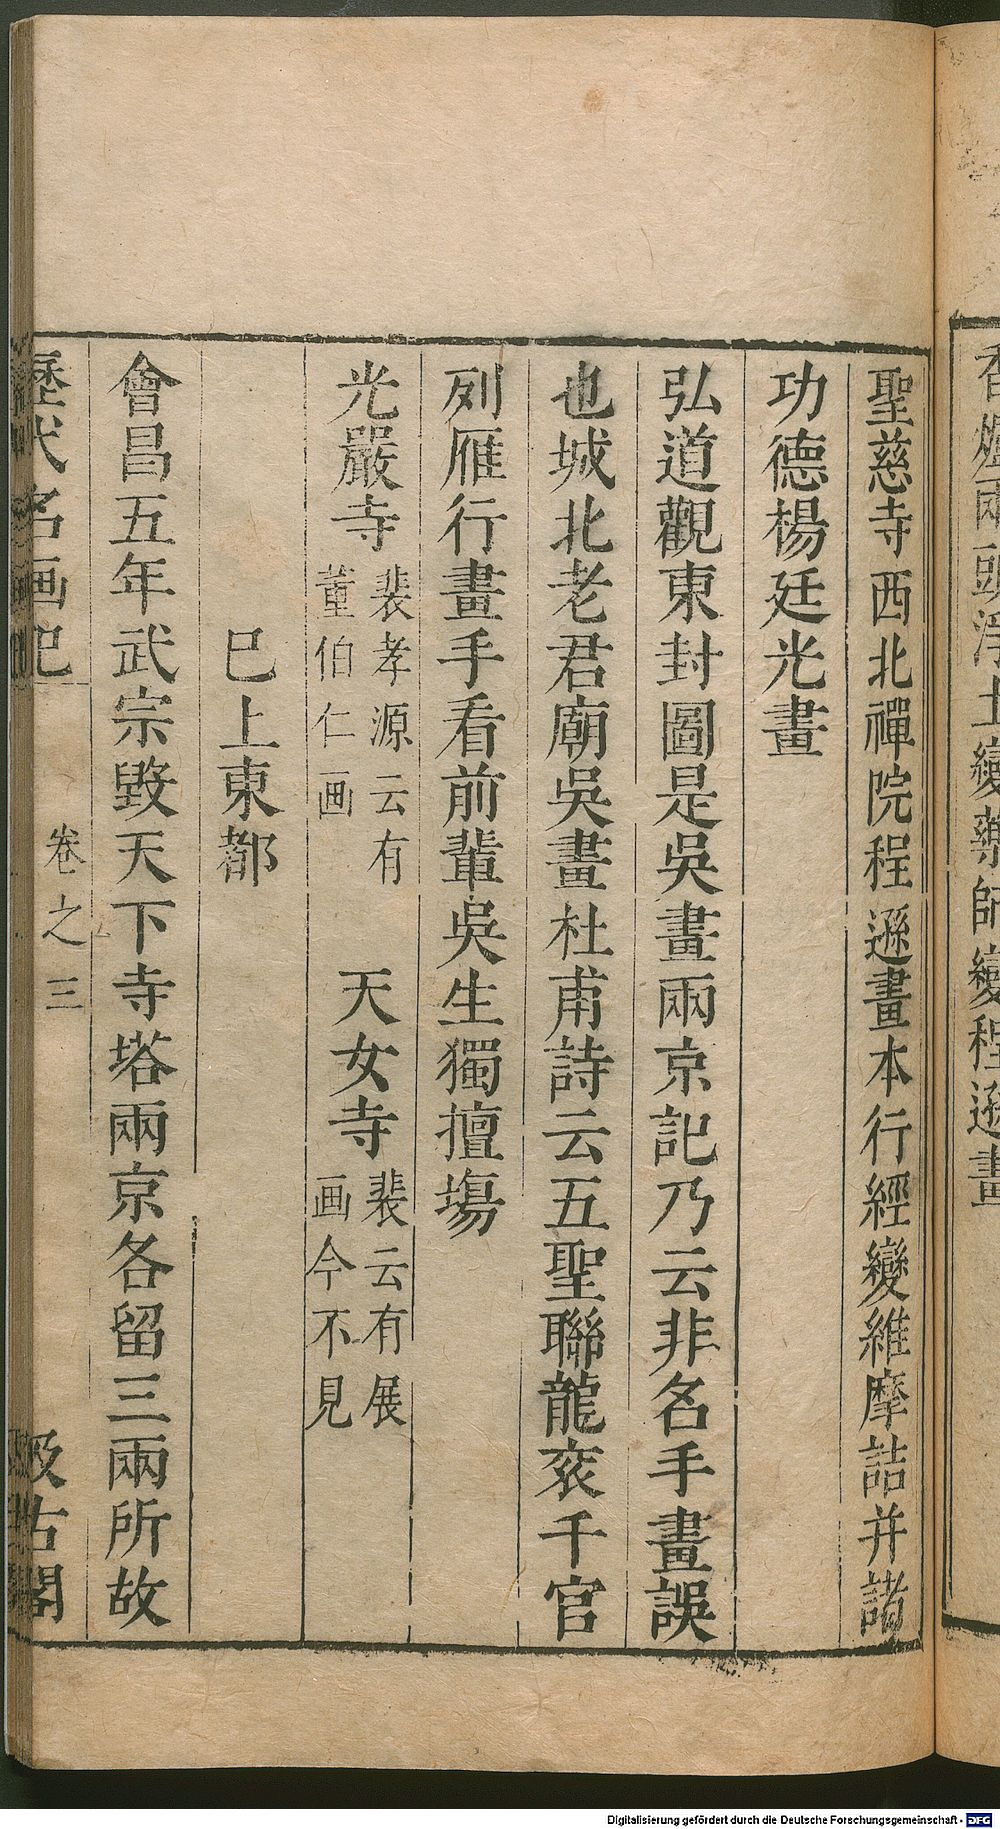 香燈兩頭淨土變藥師變程遜畫
聖慈寺西北禪院程遜畫本行經變維摩詰并諸
功德楊廷光畫
弘道觀東封圖是吳畫兩京記乃云非名手畫誤
也城北老君廟吳畫杜甫詩云五聖聯龍衮千官
列雁行畫手看前輩吳生獨擅塲
光嚴寺裴孝源云有董伯仁画　天女寺裴云有展画今不見
巳上東都
會昌五年武宗毀天下寺塔兩京各留三兩所故
歷代名画記　卷之三　汲古閣
Digitalisierung gefördert durch die Deutsche Forschungsgemeinschaft - DFG